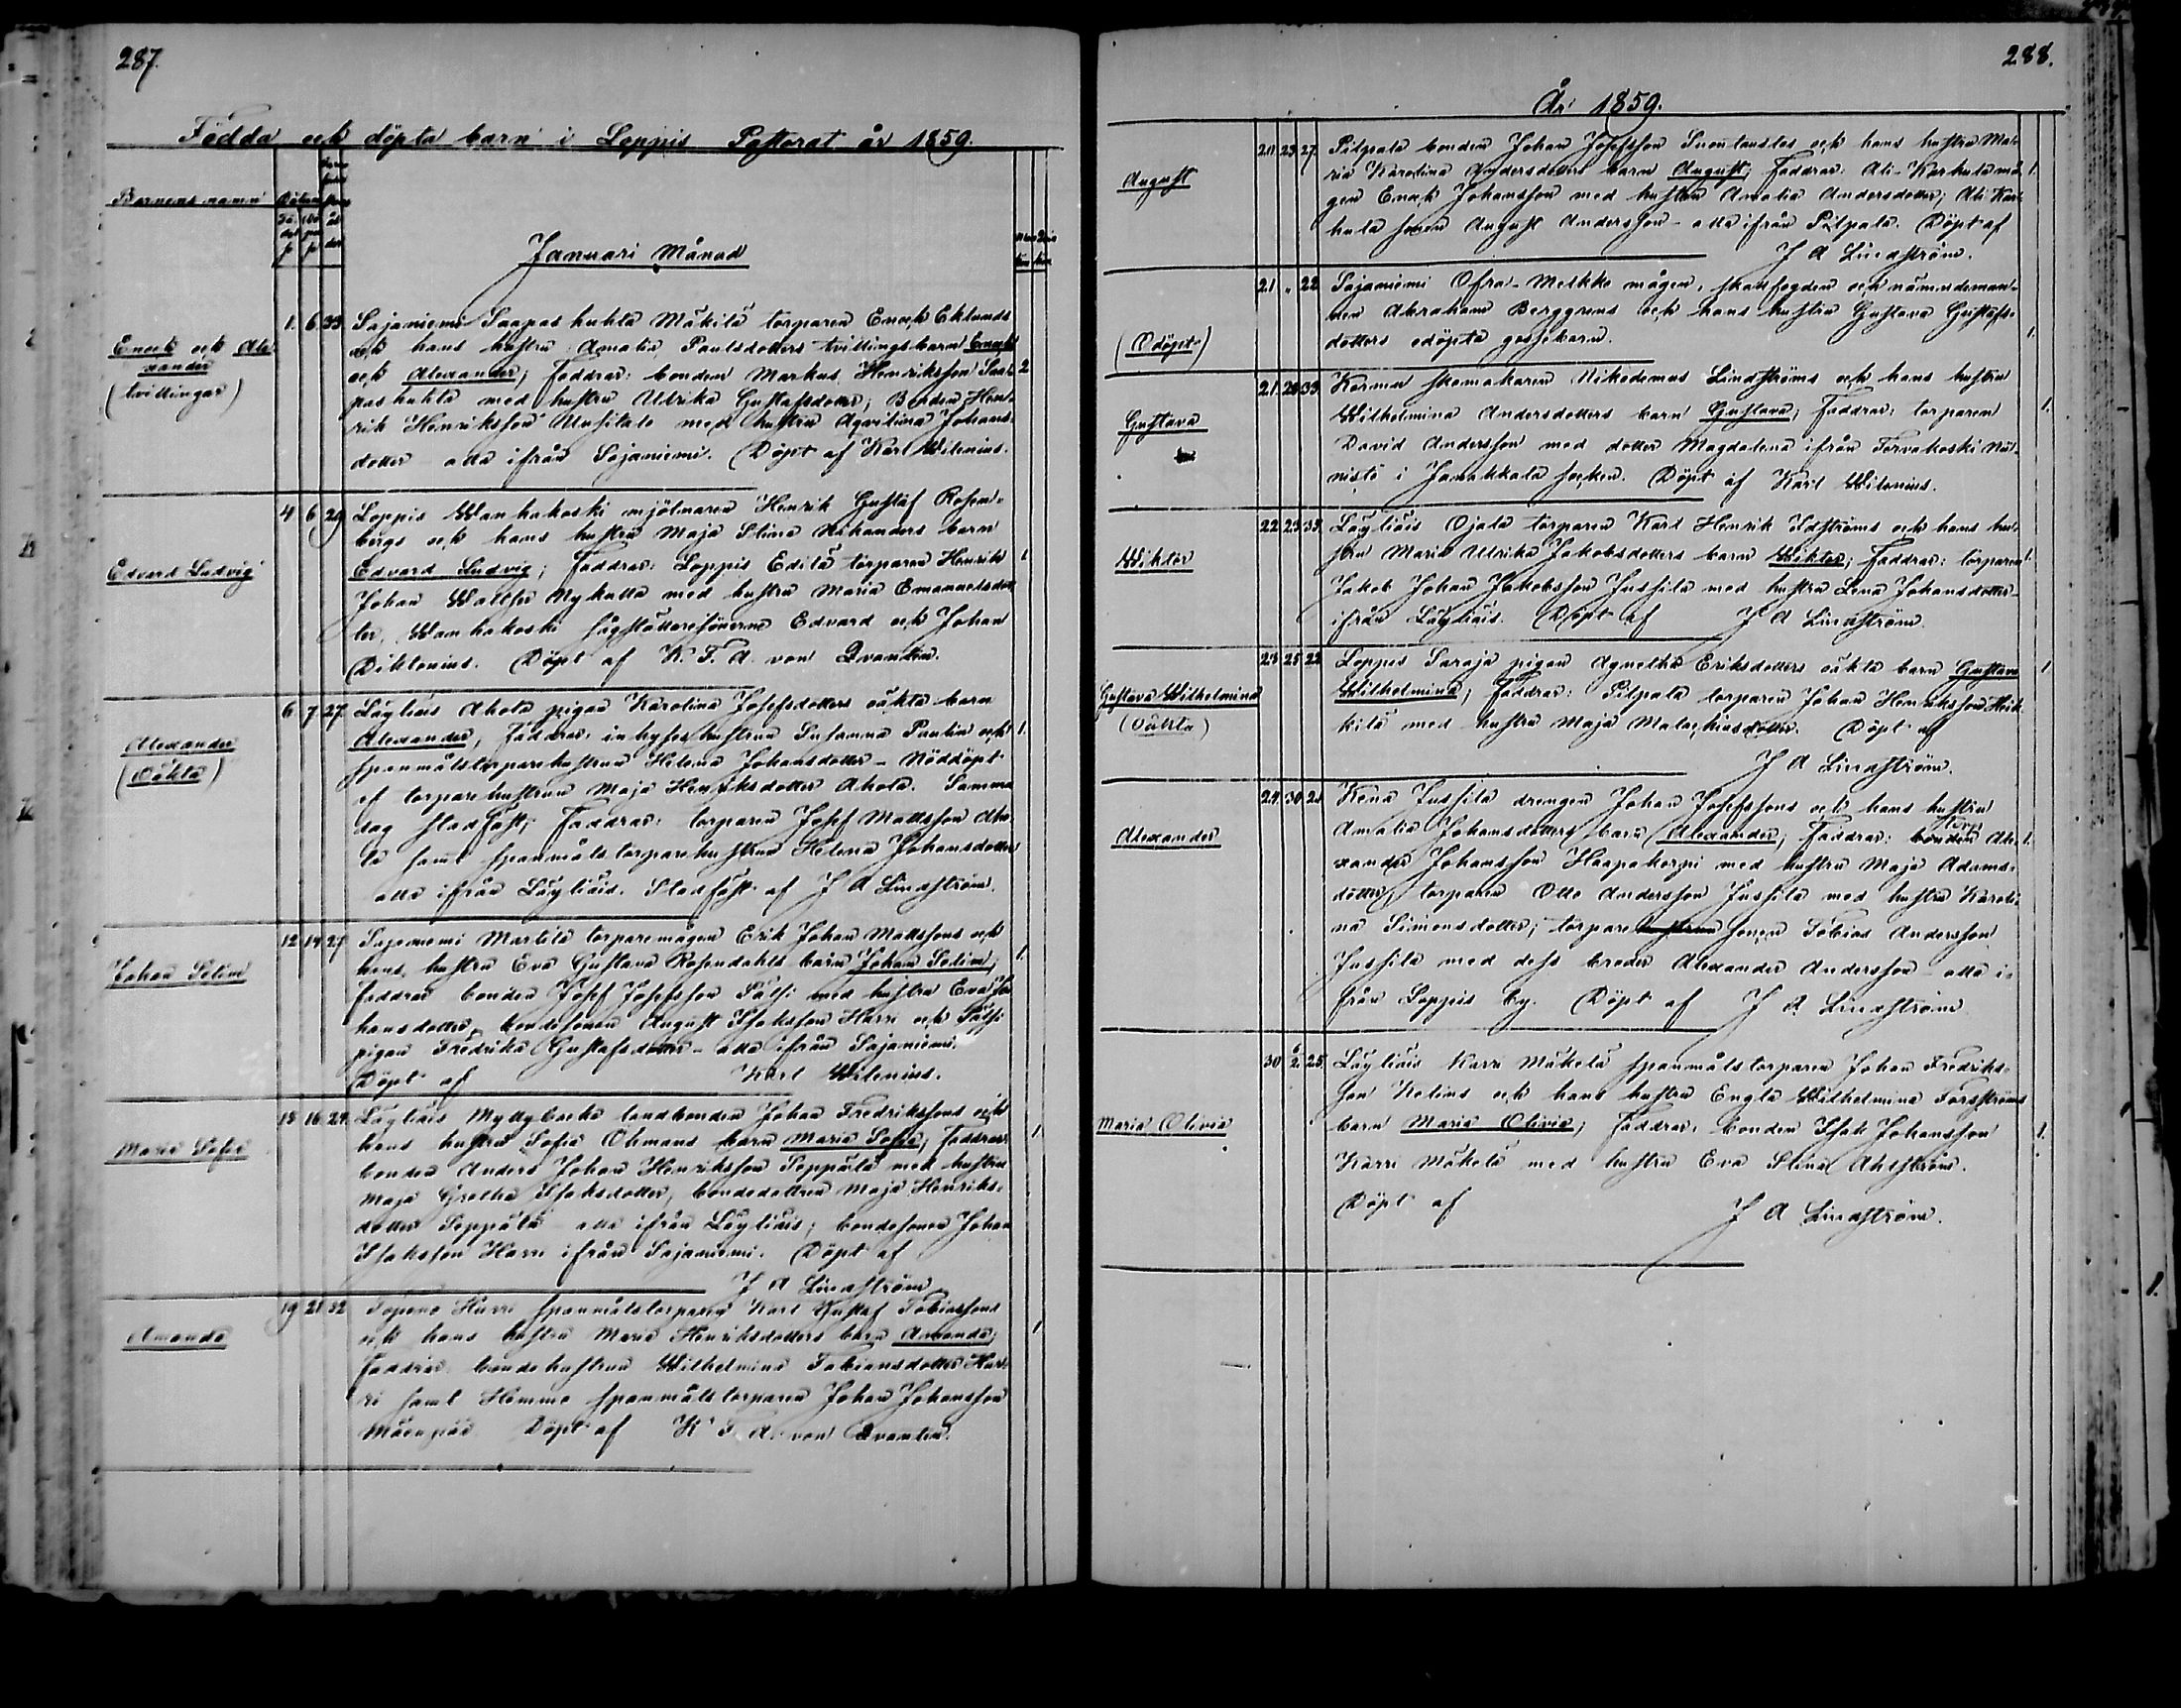 287.
Födda och döpta barn i Loppis Pastorat år 1859.
Barnens namn
Januari Månad
Enock och Ale-
xander
(tvillingar)
1. 6 33 Sajaniemi Saapas huhta Mäkilä torparen Enock Eklunds
och hans hustru Amalia Paulsdotters tvillingsbarn Enock
och Alexander; Faddrar: bonden Markus Henriksson Saa- 2
pashuhta med hustru Ulrika Gustafsdotter; Bonden Hen-
rik Henriksson Uusitalo med hustru Aqvilina Johans-
dotter alla ifrån Sajaniemi. Döpt af Karl Wilenius.
Edvard Ludvig
4 6 29 Loppis Wanhakoski mjölnaren Henrik Gustaf Rosen-
bergs och hans hustru Maja Stina Mihanders barn
Edvard Ludvig; Faddrar: Loppis Edilä torparen Henrik 1
Johan Walther Nykulla med hustru Maria Emanuelsdot-
ter, Wanhakoski sågställaresönerne Edvard och Johan
Diktonius. Döpt af K. F. A. von Qvanten.
Alexander
(Oäkta)
6 7 27 Läyliäis Ahola pigan Karolina Josefsdotters oäkta barn
Alexander, Faddrar: inhyses hustrun Susanna Paulin och 1.
spanmålstorparehustrun Helena Johansdotter – Nöddöpt
af torparehustrun Maja Henriksdotter Ahola. Samma
dag stadfäst; Faddrar: torparen Josef Mattsson Aho-
la samt spanmåls torparehustrun Helena Johansdotter
alla ifrån Läyliäis. Stadfäst af J A Lindström.
Johan Selim
12 14 27 Sajaniemi Martila torparemågen Erik Johan Mattssons och
hans hustru Eva Gustava Rosendahls barn Johan Selim; 1.
Faddrar bonden Josef Josefsson Sälhi med hustru Eva Jo-
hansdotter, bondesonen August Isaksson Harri och Sälhi
pigan Fredrika Gustafsdotter – alla ifrån Sajaniemi.
Döpt af Karl Wilenius.
Maria Sofia
15 16 24 Läyliäis Myllybacka landbonden Johan Fredrikssons och
hans hustru Sofia Öhmans barn Maria Sofia; Faddrar: 1.
bonden Anders Johan Henriksson Seppälä med hustru
Maja Gretha Isaksdotter, bondedottren Maja Henriks-
dotter Seppälä alla ifrån Läyliäis; bondesonen Johan
Isaksson Harri ifrån Sajaniemi. Döpt af
J A Lindström
Amanda
19 21 32 Topeno Hurri spanmålstorparen Karl Gustaf Tobiassons
och hans hustru Maria Henriksdotters barn Amanda; 1
Faddrar bondehustrun Wilhelmina Fabiansdotter Hur-
ri samt Hemmo spanmålstorparen Johan Johansson
Döpt af K F. A. von Qvanten.
288.
År 1859.
August
20 23 27 Pilpala bonden Johan Josefsson Suontaustas och hans hustru Ma-
ria Karolina Andersdotters barn August; Faddrar: Ali-Karhula må- 1.
gen Enock Johansson med hustru Amalia Andersdotter; Ali Kar-
hula sonen August Andersson – alla ifrån Pilpala. Döpt af
J A Lindström.
(Odöpt)
21 „ 22 Sajaniemi Ofra-Meikko mågen, skallfogden och nämndeman-
nen Abraham Berggrens och hans hustru Gustava Gustafs-
dotters odöpta gossebarn. 1.
Gustava
21. 26 39 Kormu skomakaren Nikodemus Lindströms och hans hustru
Wilhelmina Andersdotters barn Gustava; Faddrar: torparen 1.
David Andersson med dotter Magdalena ifrån Tervakoski
i Janakkala socken. Döpt af Karl Wilenius.
Wiktor
22 23 35 Läyliäis Ojala torparen Karl Henrik Idströms och hans hu-
stru Maria Ulrika Jakobsdotters barn Wiktor; Faddrar: torparen 1.
Jakob Johan Jakobsson Jussila med hustru Lena Johansdotter –
ifrån Läyliäis. Döpt af J A Lindström.
Gustava Wilhelmina
(Oäkta)
23 25 22 Loppis Saraja pigan Agnetha Eriksdotters oäkta barn Gustava 1
Wilhelmina; Faddrar: Pilpala torparen Johan Henriksson Heik-
kilä med hustru Maja Malachiasdotter. Döpt af
J A Lindström.
Alexander
24 30 21 Kena Jussila drengen Johan Josefssons och hans hustru
Amalia Johansdotters barn Alexander; Faddrar: bonden Ale- 1.
xander Johansson Haapakorpi med hustru Maja Adams-
dotter, torparen Otto Andersson Jussila med hustru Karoli-
na Simonsdotter; torpare hustrun sonen Tobias Andersson
Jussila med dess broder Alexander Andersson alla i-
från Loppis by. Döpt af J A Lindström
Maria Olivia
30 6/2 25 Läyliäis Karri Mäkelä spanmålstorparen Johan Fredriks-
son Kolins och hans hustru Engla Wilhelmina Forsströms
barn Maria Olivia; Faddrar: bonden Isak Johansson 1.
Karri Mäkelä med hustru Eva Stina Ahlström.
Döpt af J A Lindström.